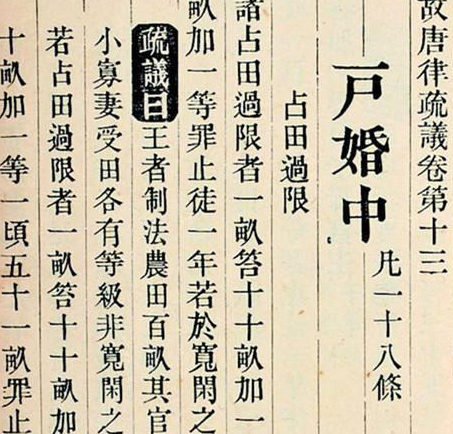 故唐律疏議卷第十三
戶婚中
凡一十八條
占田過限
諸占田過限者一畝笞十十畝加一
畝加一等罪止徒一年若於寬閑之
疏議曰王者制法農田百畝其官
小寡妻受田各有等級非寬閑之
若占田過限者一畝笞十十畝加
十畝加一等一頃五十一畝罪止